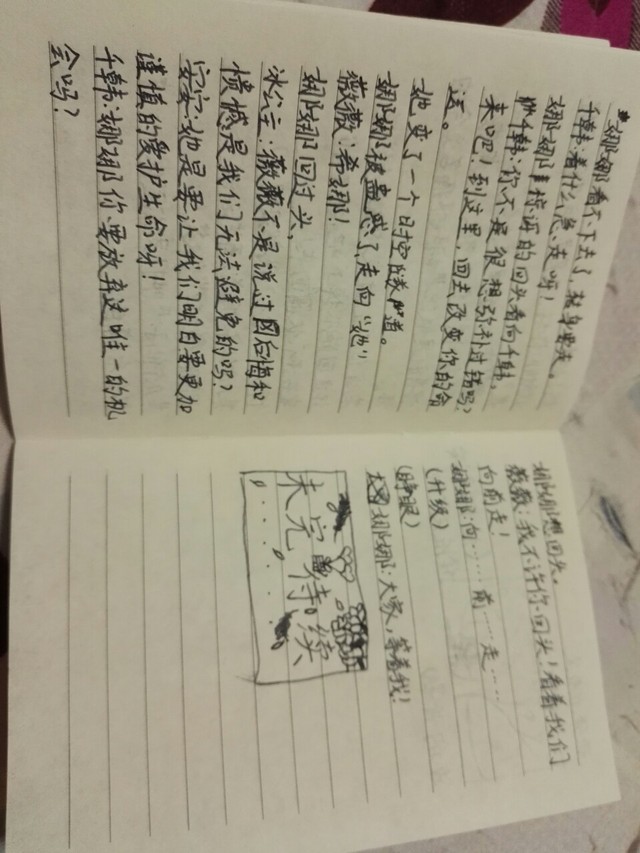 娜娜看不下去了，独身要走。
千韩：着什么急，走呀！
娜娜惊讶的回头看向千韩。
千韩：你不是很想弥补过错吗？
来吧！到这里，回去改变你的命
运。
她变了一个时空隧道。
娜娜被蛊惑了，走向“她”！
薇薇：希娜！
娜娜回过头，
冰公主：薇薇不是说过因后悔和
愤憾是我们无法避免的吗？
安安：她是要让我们明白要更加
谨慎的爱护生命呀！
千韩：娜娜你要放弃这唯一的机
会吗？
娜娜想回头。
薇薇：我不许你回头！看着我们
向前走！
娜娜：向……前……走……
(升级)
(睁眼)
娜娜：大家，等着我！
未完待续
......